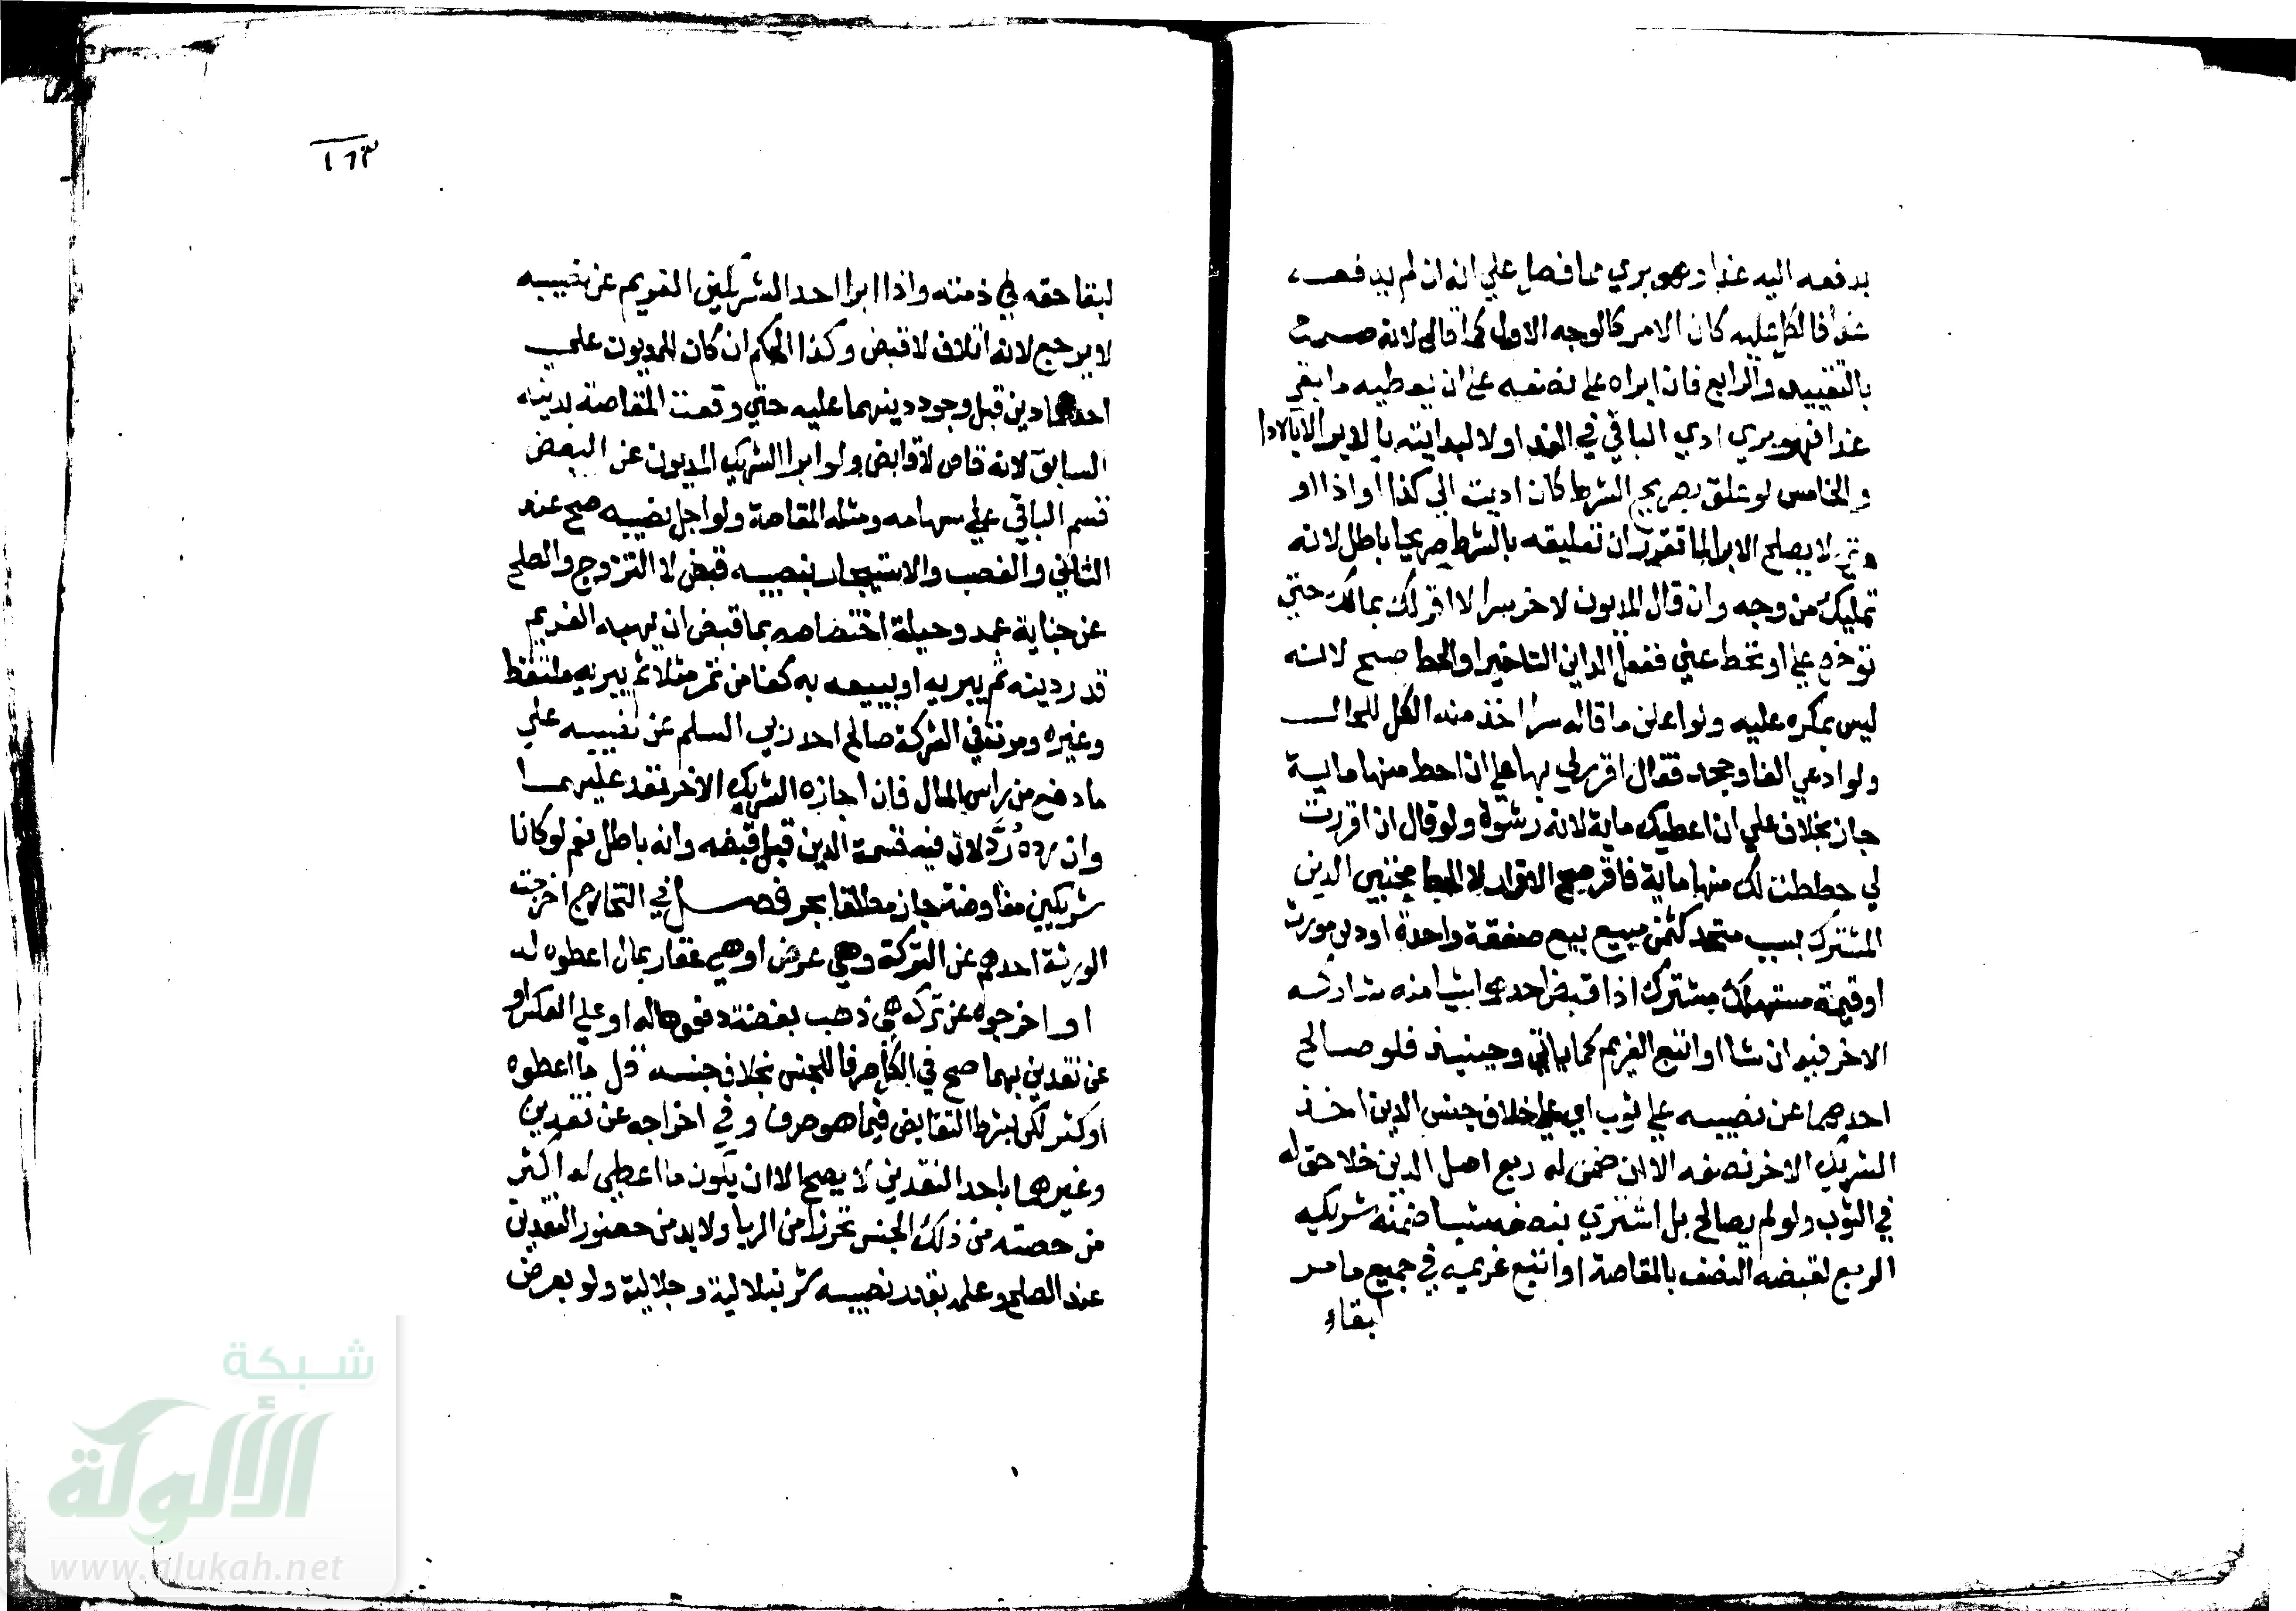 يدفعه اليه غدا وهو بري مما فضل علي انه ان لم يدفعه
غدا فالكل عليه كان الامر كالوجه الاول كما قال لانه صرح
بالتقييد والرابع فان ابراه علي نصفه علي ان يعطيه ما بقي
غدا فهو بري ادي الباقي في الغد اولا لبدايته بالابرا لا بالادا
والخامس لو علق بصريح الشرط كان اديت الي كذا او اذا او
متي لا يصلح الابرا لما تقرر ان تعليقه بالشرط صريحا باطل لانه
تمليك من وجه وان قال المديون لاخر سرا لا اقر لك بمالك حتي
توخره علي او تحط عني ففعل الداين التاخير او الحط صح لانه
ليس بمكره عليه ولو اعلن ما قاله سرا اخذ منه الكل للحال
ولو ادعي الفا وجحد فقال اقرر لي بها علي ان احط منها ماية
جاز بخلاف علي ان اعطيك ماية لانه رشوة ولو قال ان اقررت
لي حططت لك منها ماية فاقر صح الاقرار لا الحط مجتبي الدين
المشترك بسبب متحد كثمن مبيع بيع صفقة واحدة او دين موروث
او قيمة مستهلك مشترك اذا قبض احدهما شيا منه شاركه
الاخر فيه ان شا او اتبع الغريم كما ياتي وحينيذ فلو صالح
احدهما عن نصيبه علي ثوب اي علي خلاف جنس الدين اخذ
الشريك الاخر نصفه الا ان ضمن له ربع اصل الدين فلا حق له
في الثوب ولو لم يصالح بل اشتري بنصفه شيا ضمنه شريكه
الربع لقبضه النصف بالمقاصة او اتبع غريمه في جميع ما مر
لبقاء
١٦٣
لبقا حقه في ذمته واذا ابرا احد الشريكين الغريم عن نصيبه
لا يرجع لانه اتلاف لا قبض وكذا الحكم ان كان للمديون علي
احدهما دين قبل وجود دينهما عليه حتي وقعت المقاصة بدينه
السابق لانه قاض لا قابض ولو ابرا الشريك المديون عن البعض
قسم الباقي علي سهامه ومثله المقاصة ولو اجل نصيبه صح عند
الثاني والغصب والاستيجار بنصيبه قبض لا التزوج والصلح
عن جناية عمد وحيلة اختصاصه بما قبض ان يهبه الغريم
قدر دينه ثم يبريه او يبيعه به كفا من تمر مثلا ثم يبريه ملتقط
وغيره ومر تقفي الشركة صالح احد ربي السلم عن نصيبه علي
ما دفع من راس المال فان اجازه الشريك الاخر نفذ عليهما
وان رده رد لان فيه قسمة الدين قبل قبضه وانه باطل نعم لو كانا
شريكين مفاوضة جاز مطلقا بحر فصل في التخارج اخرجت
الورثة احدهم عن التركة وهي عرض او هي عقار بمال اعطوه له
او اخرجوه عن تركة هي ذهب بفضة دفعوها له او علي العكس او
عن نقدين بهما صح في الكل صرفا للجنس بخلاف جنسه قل ما اعطوه
او كثر لكن بشرط التقابض فيما هو صرف وفي اخراجه عن نقدين
وغيرهما باحد النقدين لا يصح الا ان يكون ما اعطي له اكثر
من حصته من ذلك الجنس تحرزا من الربا ولا بد من حضور النقدين
عند الصلح وعلمه بقدر نصيبه شرنبلالية وجلالية ولو بعرض
شبكة
الألوكة
www.alukah.net